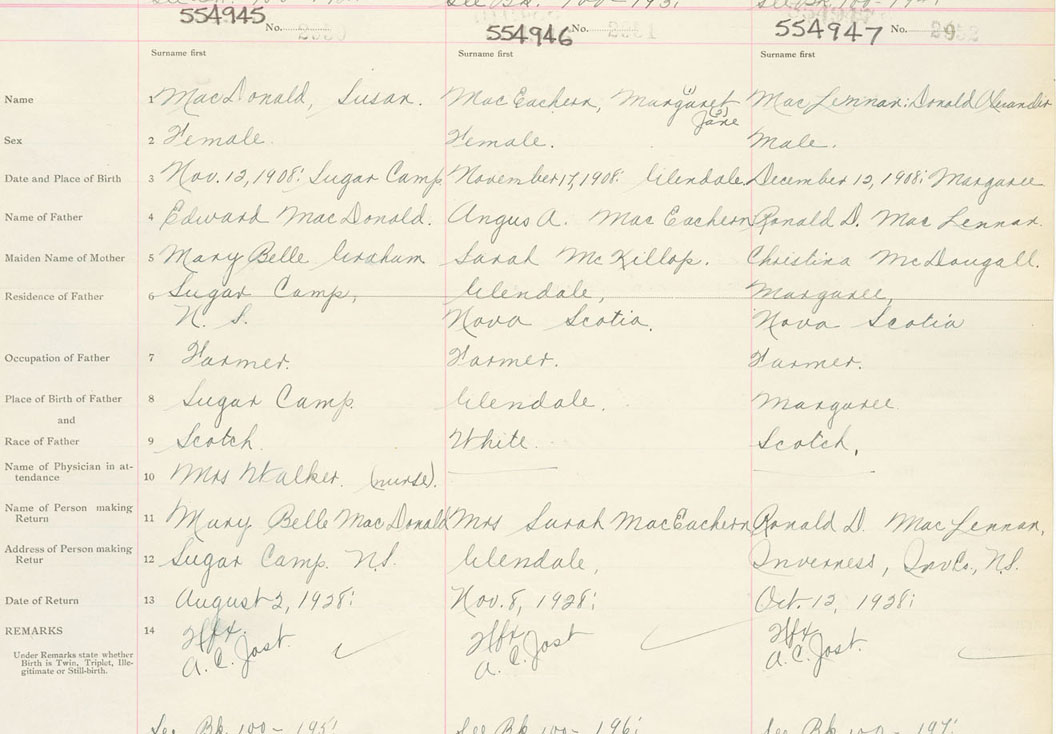 554945 No. 554946 No. 554947 No.
Surname first Surname first Surname first
Name 1 MacDonald, Susan. MacEachern, Margaret (1) MacLennan: Donald Alexander
Jane (2)
Sex 2 Female. Female. Male.
Date and Place of Birth 3 Nov. 12, 1908: Sugar Camp November 17, 1908: Glendale. December 12, 1908: Margaree
Name of Father 4 Edward MacDonald. Angus A. MacEachern Ronald D. MacLennan.
Maiden Name of Mother 5 Mary Belle Graham Sarah McKillop. Christina McDougall.
Residence of Father 6 Sugar Camp, Glendale, Margaree,
N. S. Nova Scotia. Nova Scotia
Occupation of Father 7 Farmer. Farmer. Farmer.
Place of Birth of Father 8 Sugar Camp. Glendale. Margaree
and
Race of Father 9 Scotch. White. Scotch.
Name of Physician in at-
tendance 10 Mrs Walker. (nurse).
Name of Person making
Return 11 Mary Belle MacDonald Mrs Sarah MacEachern Ronald D. MacLennan,
Address of Person making
Retur 12 Sugar Camp. N.S. Glendale, Inverness, Inv Co., N.S.
Date of Return 13 August 2, 1928: Nov. 8, 1928: Oct. 12, 1928:
REMARKS 14 Hfx. Hfx. Hfx.
A. C. Jost A. C. Jost A. C. Jost.
Under Remarks state whether
Birth is Twin, Triplet, Ille-
gitimate or Still-birth.
See Bk. 100- 195: See Bk 100- 196: See Bk. 100- 197: